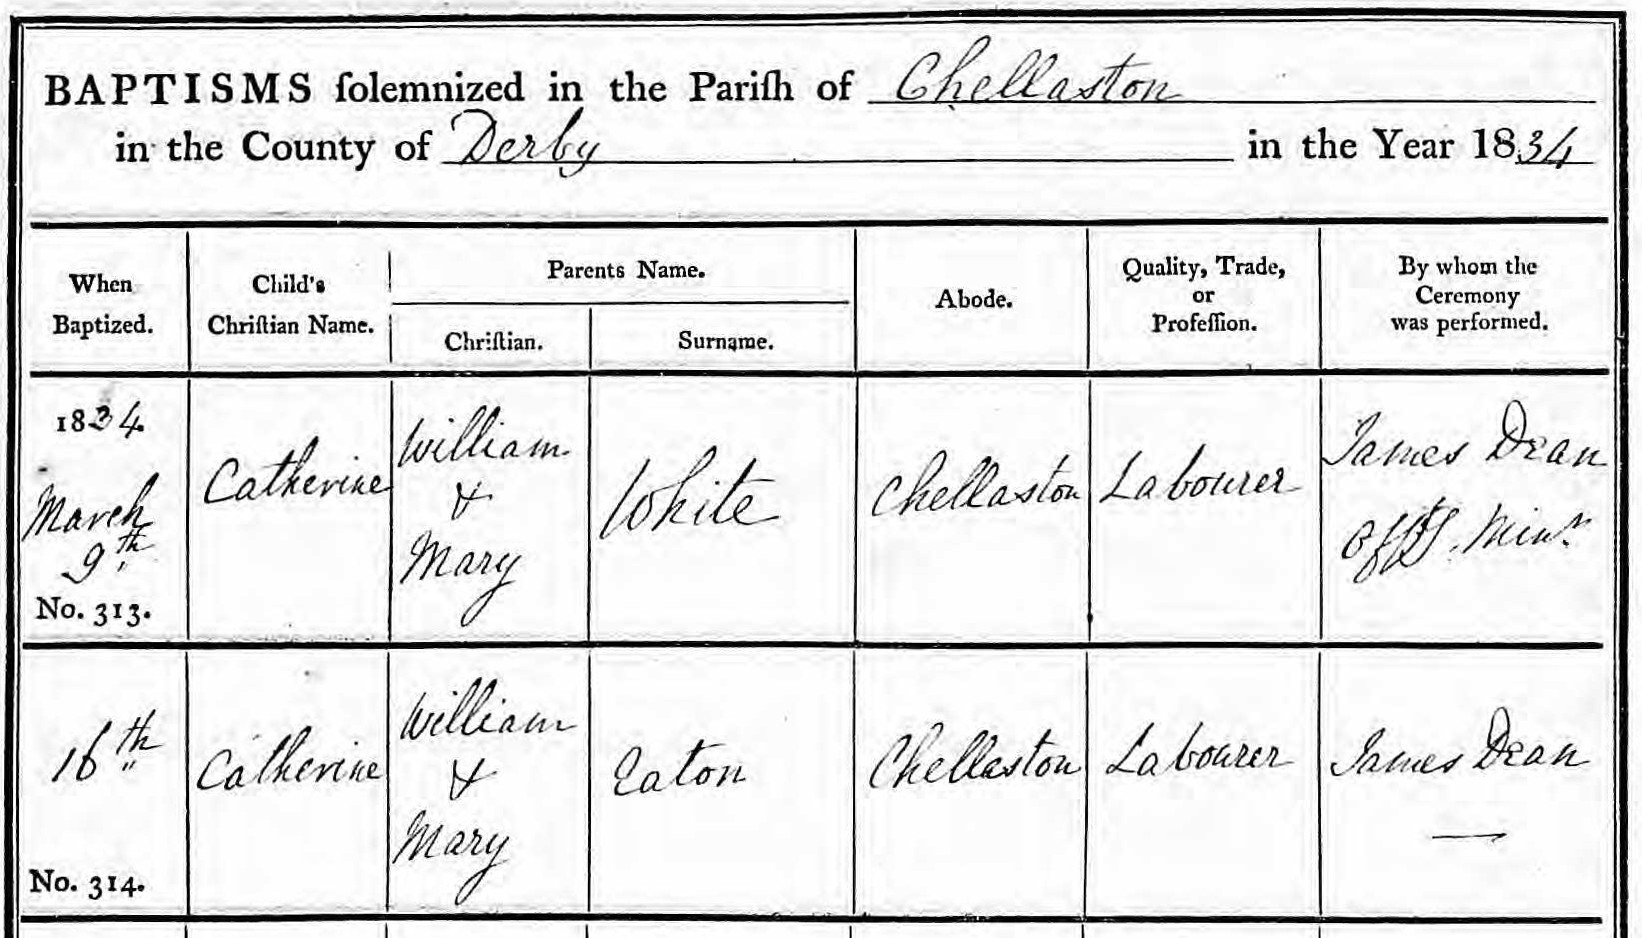 BAPTISMS ſolemnized in the Pariſh of Chellaston
in the County of Derby in the Year 1834
When
Baptized.
Child's
Chriſtian Name.
Parents Name.
Chriſtian.
Surname.
Abode.
Quality, Trade,
or
Profeſſion.
By whom the
Ceremony
was performed.
1834.
March
9th
No. 313.
Catherine
William
&
Mary
White
Chellaston
Labourer
James Dean
Offg. Minr.
16th
No. 314.
Catherine
William
&
Mary
Eaton
Chellaston
Labourer
James Dean